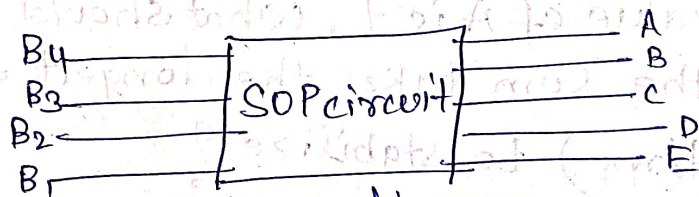 B4
B3
B2
B1
SOP circuit
A
B
C
D
E